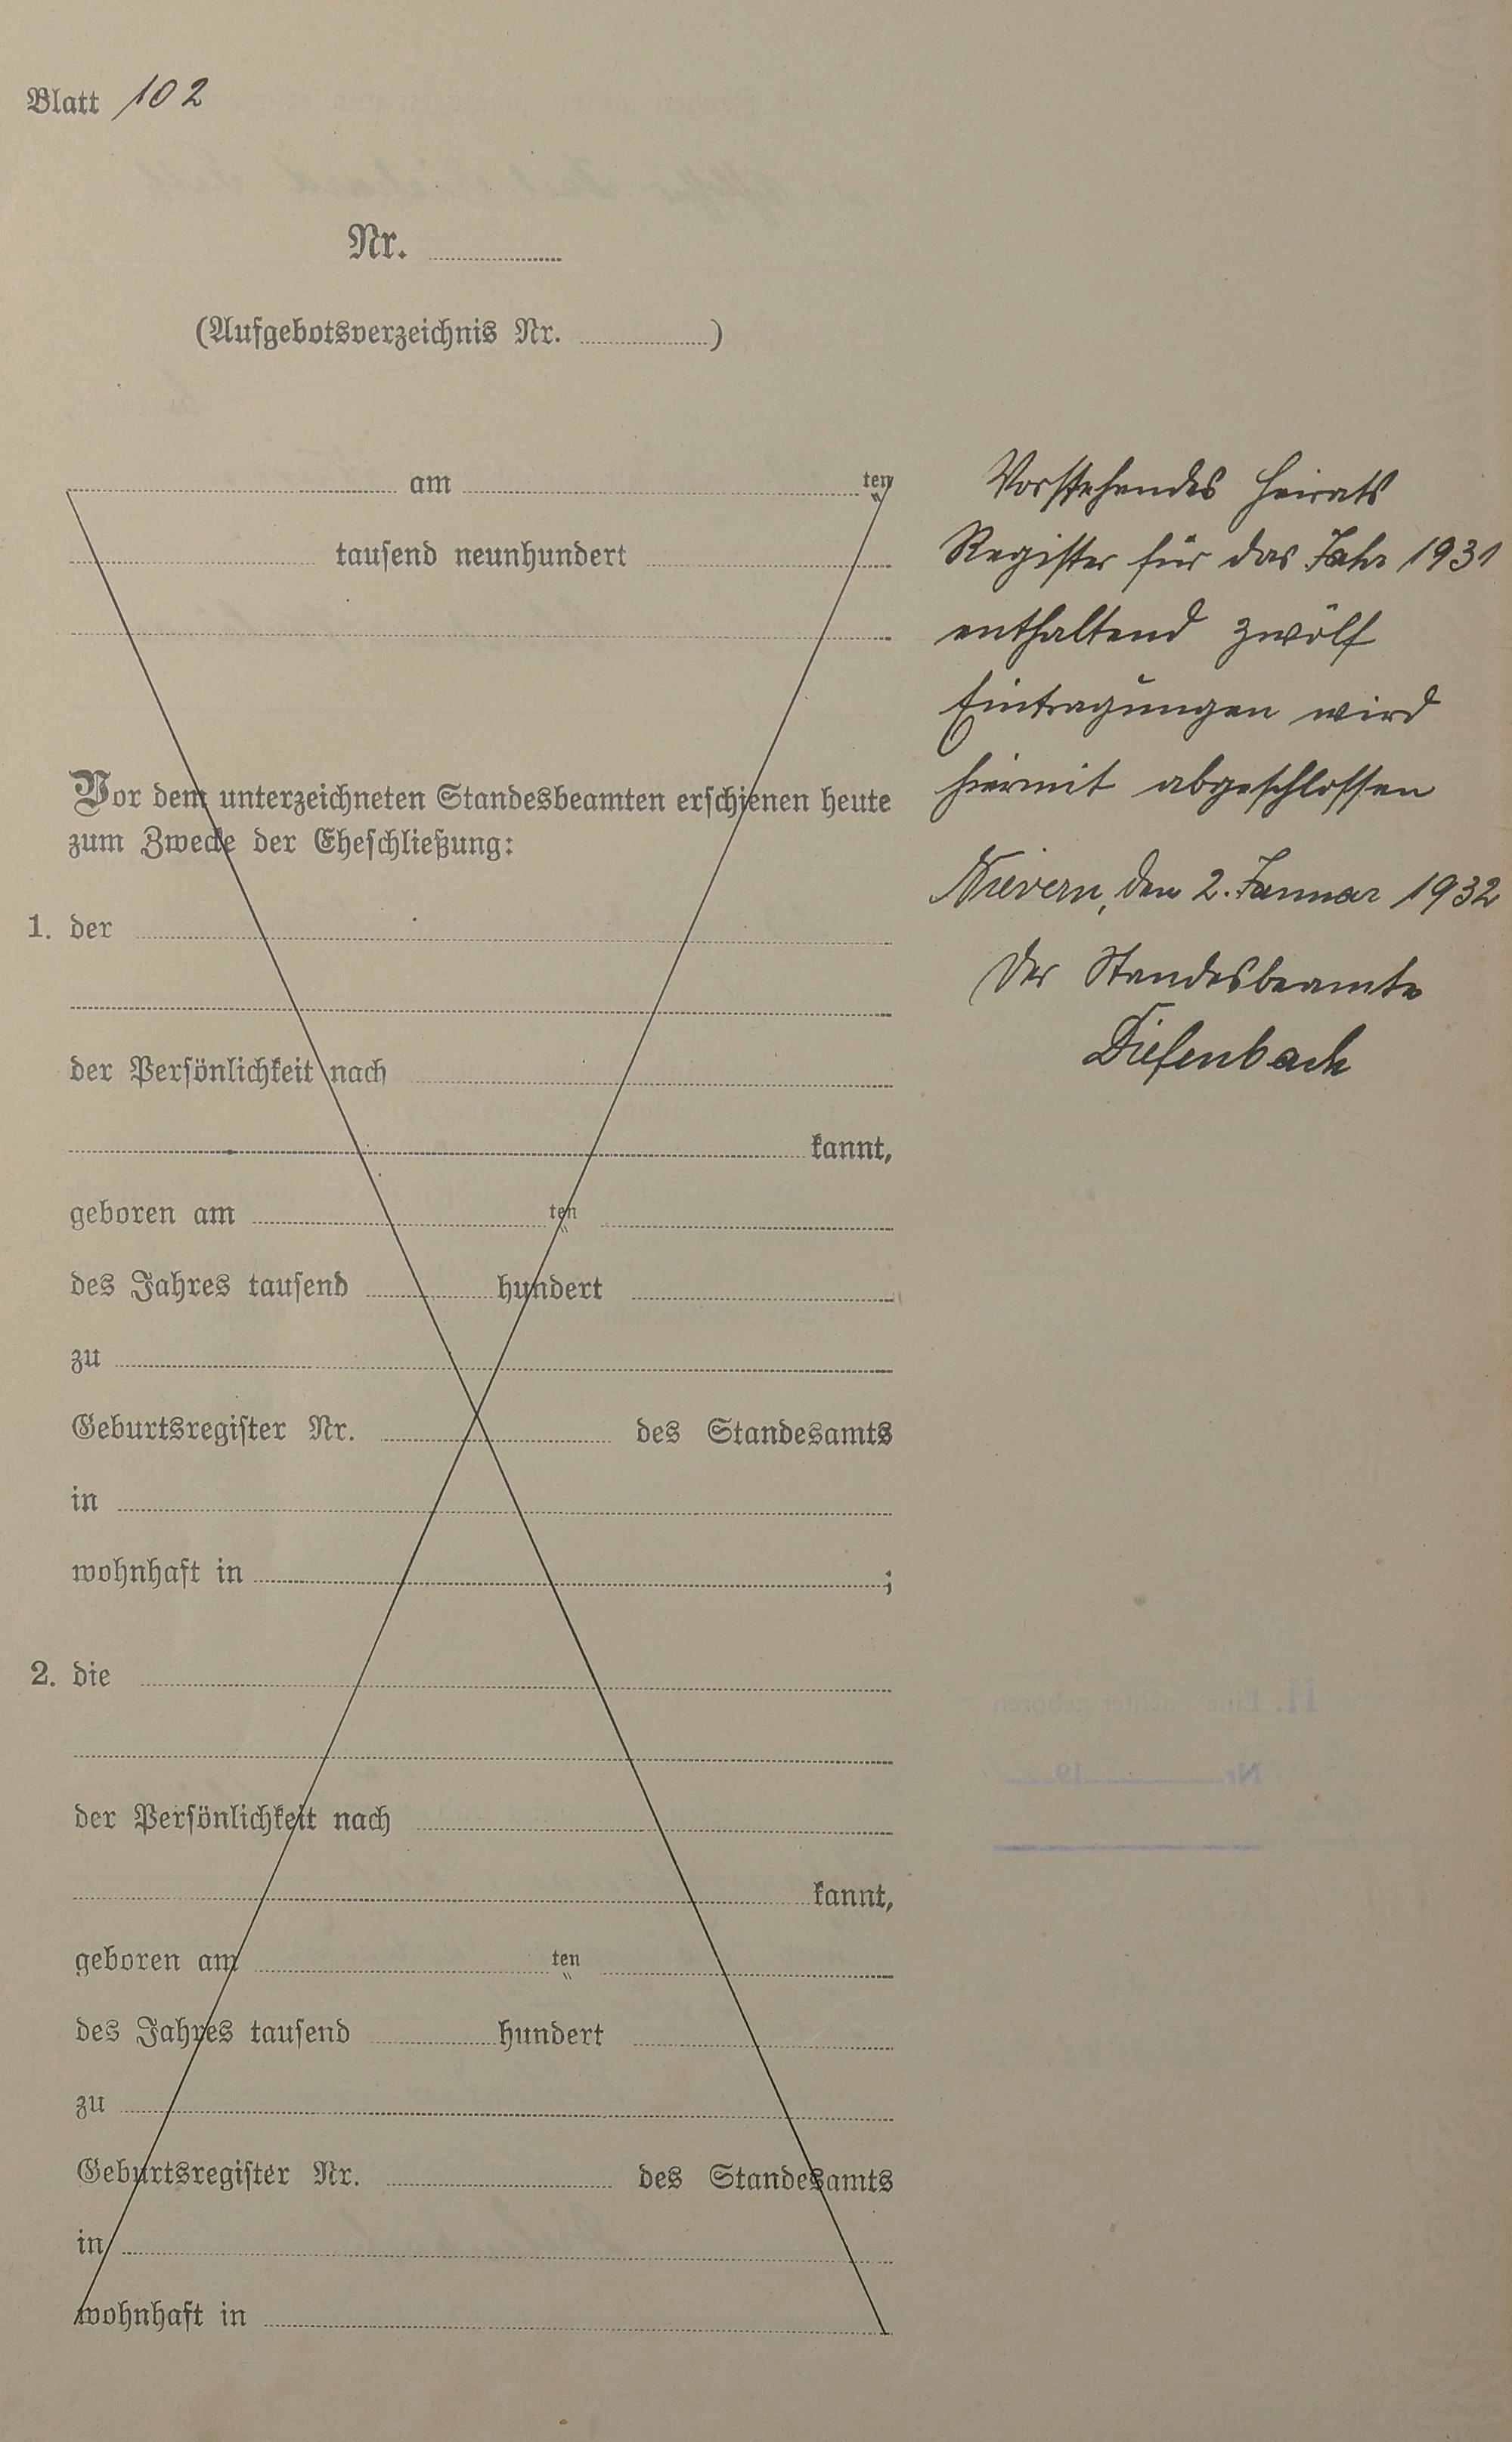 Blatt 102
Nr.
(Aufgebotsverzeichnis Nr. )
am ten
tausend neunhundert
Vor dem unterzeichneten Standesbeamten erschienen heute
zum Zwecke der Eheschließung:
1. der
der Persönlichkeit nach
kannt,
geboren am ten
des Jahres tausend hundert
zu
Geburtsregister Nr. des Standesamts
in
wohnhaft in ;
2. die
der Persönlichkeit nach
kannt,
geboren am ten
des Jahres tausend hundert
zu
Geburtsregister Nr. des Standesamts
in
wohnhaft in
Vorstehendes Heirats
Register für das Jahr 1931
enthaltend zwölf
Eintragungen wird
hiermit abgeschlossen
Nievern, den 2. Januar 1932
Der Standesbeamte
Diefenbach
H. Eine Tochter geboren
Nr. 19